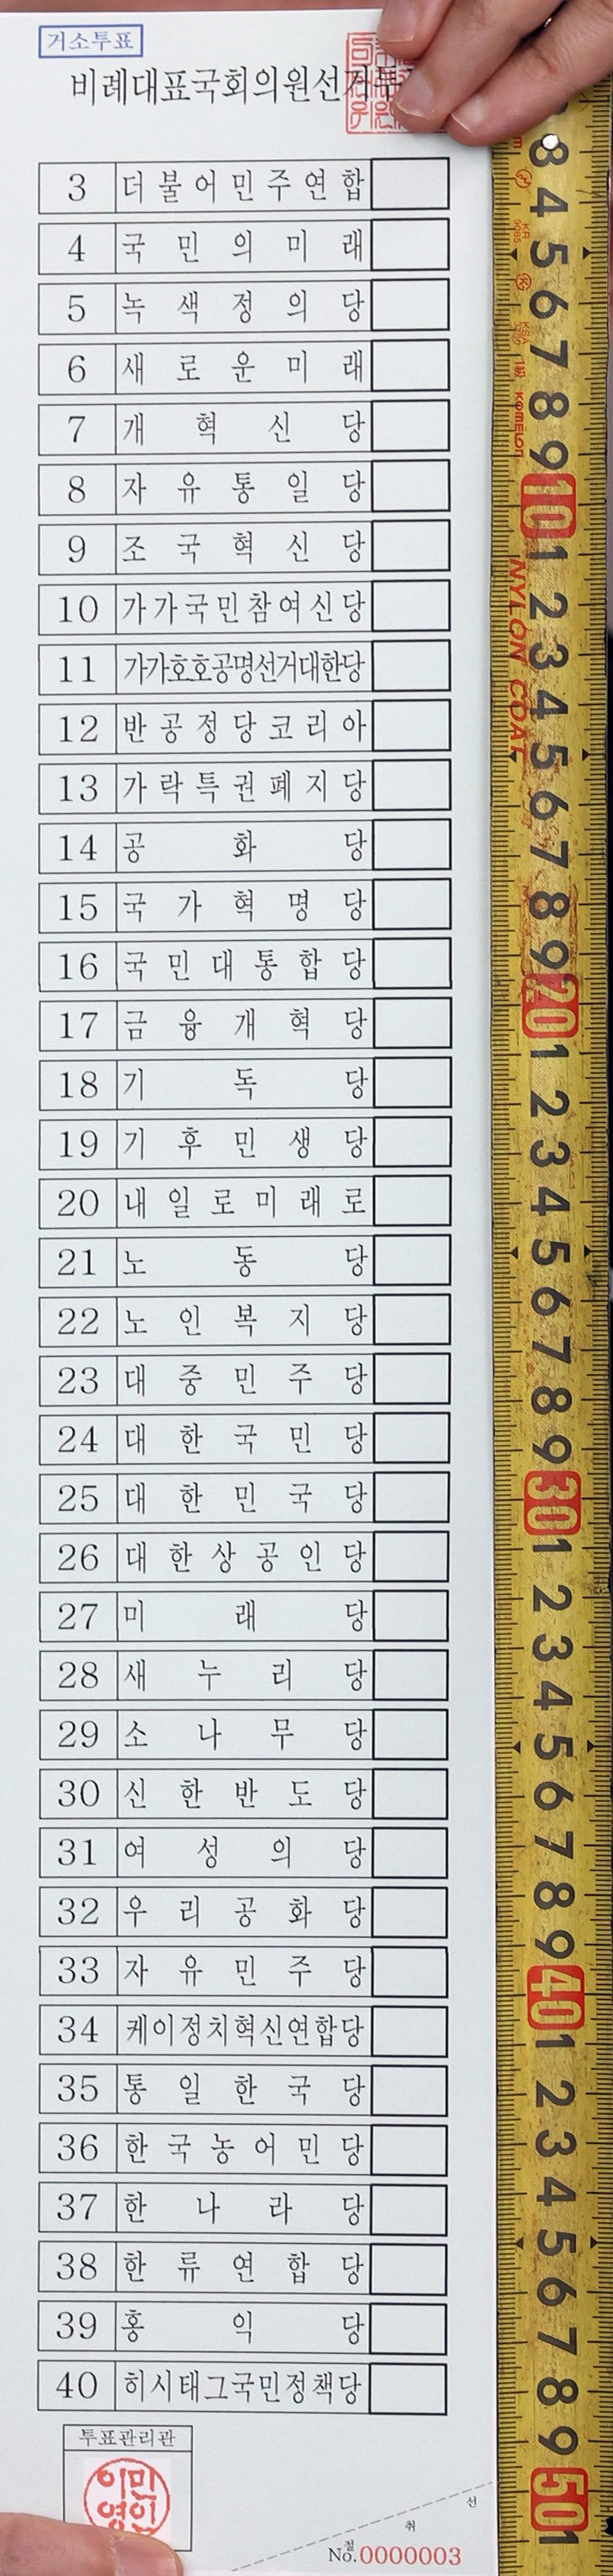 거소투표
비례대표국회의원선거투
3 더불어민주연합
4 국민의미래
5 녹색정의당
6 새로운미래
7 개혁신당
8 자유통일당
9 조국혁신당
10 가가국민참여신당
11 가가호호공명선거대한당
12 반공정당코리아
13 가락특권폐지당
14 공화당
15 국가혁명당
16 국민대통합당
17 금융개혁당
18 기독당
19 기후민생당
20 내일로미래로
21 노동당
22 노인복지당
23 대중민주당
24 대한국민당
25 대한민국당
26 대한상공인당
27 미래당
28 새누리당
29 소나무당
30 신한반도당
31 여성의당
32 우리공화당
33 자유민주당
34 케이정치혁신연합당
35 통일한국당
36 한국농어민당
37 한나라당
38 한류연합당
39 홍익당
40 히시태그국민정책당
투표관리관
절취선
No.0000003
KOMELON
NYLON COAT
3 4 5 6 7 8 9 10 1 2 3 4 5 6 7 8 9 20 1 2 3 4 5 6 7 8 9 30 1 2 3 4 5 6 7 8 9 40 1 2 3 4 5 6 7 8 9 50 1